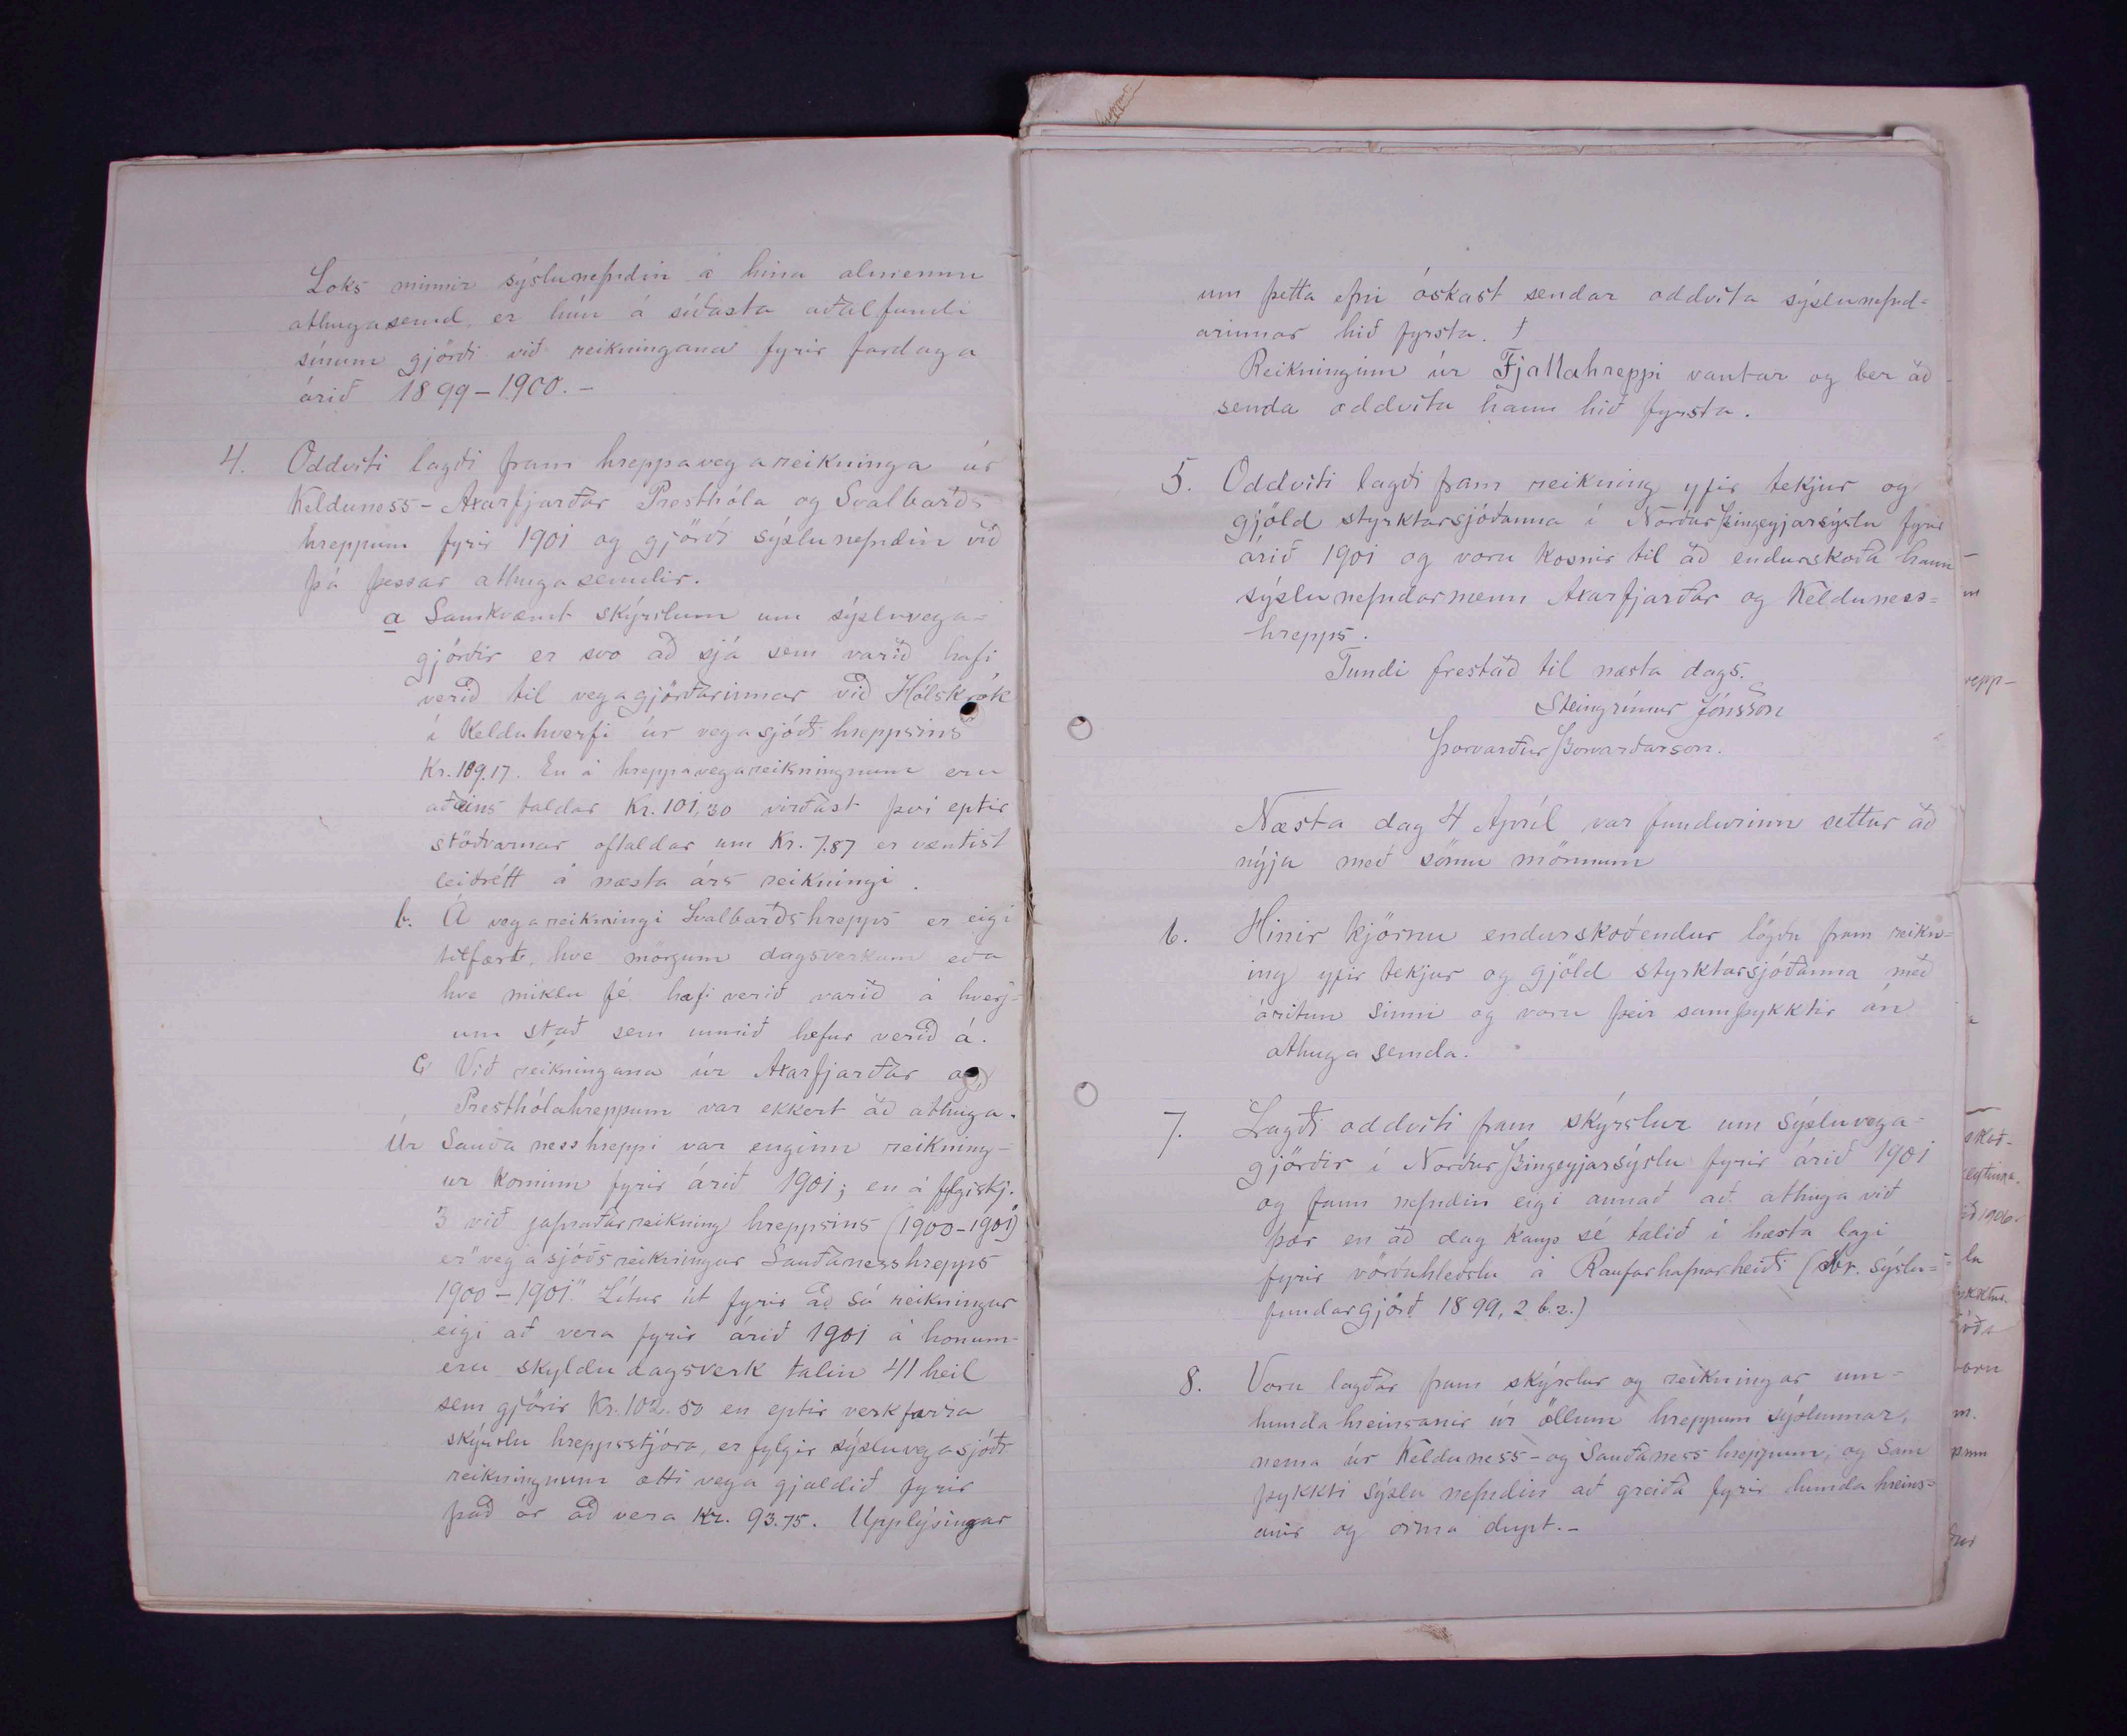 Loks minnir sýslunefndin á hina almennu
athugasemd, er hún á síðasta aðalfundi
sínum gjörði við reikningana fyrir fardaga
árið 1899-1900.-
4. Oddviti lagði fram hreppavegareikninga úr
Kelduness- Axarfjarðar Presthóla og Svalbarðs
hreppum fyrir 1901 og gjörði sýslunefndin við
þá þessar athugasemdir.
a Samkvæmt skýrslum um sýsluvega-
gjörðir er svo að sjá sem varið hafi
verið til vegagjörðarinnar við Hólskrók
í Kelduhverfi úr vegasjóði hreppsins
Kr. 109.17. En á hreppavegareikningnum eru
aðeins taldar Kr. 101,30 virðast því eptir
stöðvarnar oftaldar um Kr. 7.87 er væntist
leiðrétt á næsta árs reikningi.
b. Á vegareikningi Svalbarðshrepps er eigi
tilfært, hve mörgum dagsverkum eða
hve miklu fé hafi verið varið á hverj-
um stað sem unnið hefur verið á.
c Við reikningana úr Axarfjarðar og
Presthólahreppum var ekkert að athuga.
Úr Sauðanesshreppi var enginn reikning-
ur kominn fyrir árið 1901; en á fylgiskj.
3 við jafnaðarreikning hreppsins (1900-1901)
er "vegasjóðsreikningur Sauðanesshrepps
1900-1901". Lítur út fyrir að sá reikningur
eigi að vera fyrir árið 1901 á honum
eru skyldudagsverk talin 41 heil
sem gjörir Kr. 102.50 en eptir verkfærra
skýrslu hreppsstjóra, er fylgir sýsluvegasjóðs
reikningnum ætti vegagjaldið fyrir
það ár að vera Kr. 93.75. Upplýsingar
um þetta efni óskast sendar oddvita sýslunefnd-
arinnar hið fyrsta. †
Reikninginn úr Fjallahreppi vantar og ber að
senda oddvita hann hið fyrsta.
5. Oddviti lagði fram reikning yfir tekjur og
gjöld styrktarsjóðanna í Norður Þingeyjarsýslu fyrir
árið 1901 og voru kosnir til að endurskoða hann
sýslunefndarmenn Axarfjarðar og Kelduness-
hrepps.
Fundi frestað til næsta dags.
Steingrímur Jónsson
Þorvarður Þorvarðarson.
Næsta dag 4 Apríl var fundurinn settur að
nýju með sömu mönnum
6. Hinir kjörnu endurskoðendur lögðu fram reikn-
ing yfir tekjur og gjöld styrktarsjóðanna með
áritun sinni og voru þeir samþykktir án
athugasemda.
7. Lagði oddviti fram skýrslur um sýsluvega-
gjörðir í Norður Þingeyjarsýslu fyrir árið 1901
og fann nefndin eigi annað að athuga við
þær en að dagkaup sé talið í hæsta lagi
fyrir vörðuhleðslu á Raufarhafnarheiði (sbr. sýslu-
fundargjörð 1899, 2 b.2.)
8. Voru lagðar fram skýrslur og reikningar um
hundahreinsanir úr öllum hreppum sýslunnar,
nema úr Kelduness- og Sauðaness hreppum; og sam
þykkti sýslunefndin að greiða fyrir hundahreins-
anir og orma dupt.-